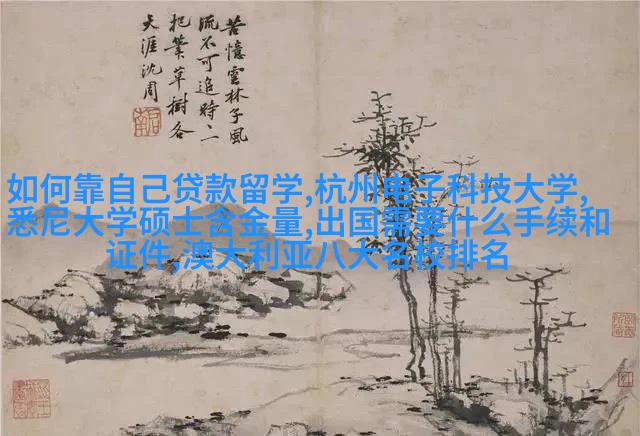 苦憶雲林子風
流不可追時二
把筆草樹各
天涯沈周
如何靠自己贷款留学,杭州电子科技大学,
悉尼大学硕士含金量,出国需要什么手续和
证件,澳大利亚八大名校排名